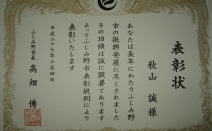 表彰状
秋山 誠様
あなたは長年にわたりふじみ野
市の振興発展に尽くされました
その功績は誠に顕著であります
よってふじみ野市表彰規則により
表彰いたします
平成二十七年十月四日
ふじみ野市長 高畑 博